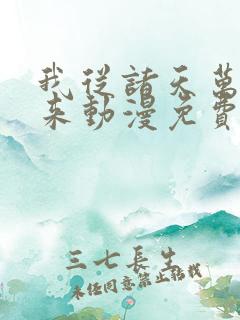 我從諸天萬
來動漫免費
三七長生
未经同意禁止转载